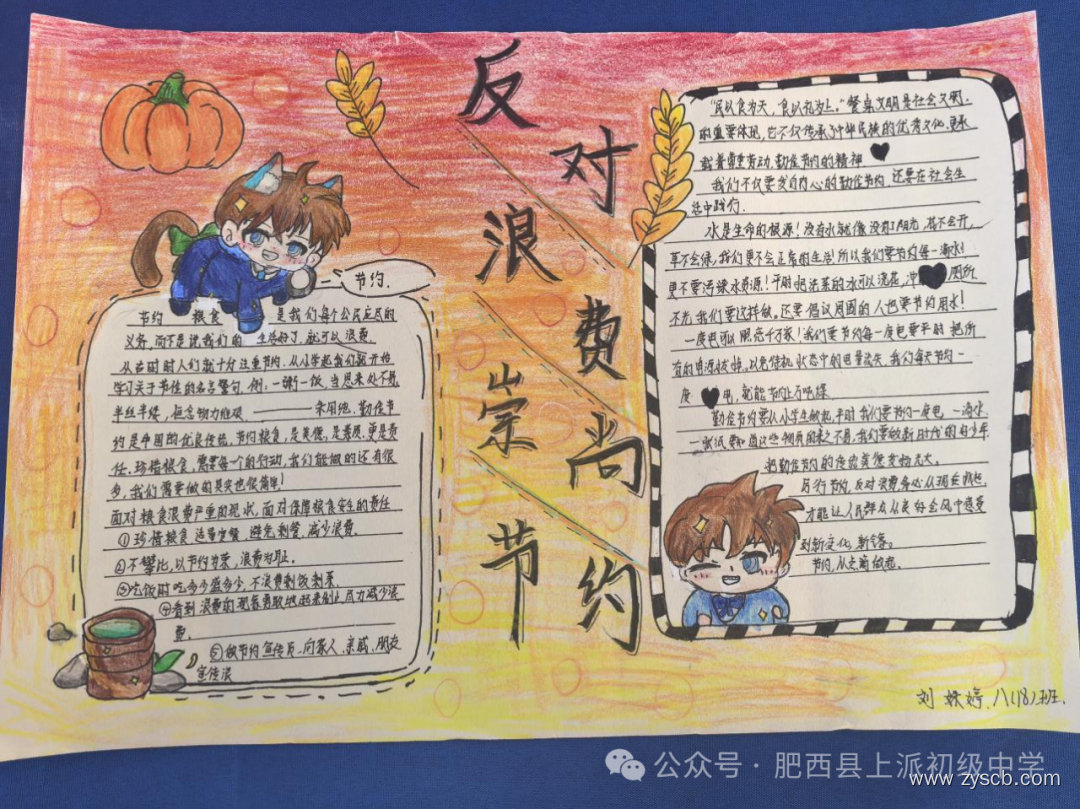 反对浪费 崇尚节约
节约.
节约 粮食 是我们每个公民应尽的
义务, 而不是说我们的 生活好了, 就可以浪费.
从古时时人们就十分注重节约. 从小学起我们就开始
学习关于节俭的名言警句. 例: 一粥一饭, 当思来处不易
半丝半缕, 恒念物力维艰 ——朱用纯. 勤俭节
约是中国的优良传统, 节约粮食, 是美德, 是素质, 更是责
任. 珍惜粮食, 需要每一个的行动, 我们能做的还有很
多, 我们需要做的其实也很简单!
面对粮食浪费严重的现状, 面对保障粮食安全的责任
①珍惜粮食 适量定餐 避免剩餐, 减少浪费.
②不攀比, 以节约为荣, 浪费为耻.
③吃饭时吃多少盛多少, 不浪费剩饭剩菜.
④看到浪费的现象勇敢地起来制止尽力减少浪
费.
⑤做节约宣传员 向家人, 亲戚, 朋友
宣传浪
"民以食为天, 食以礼为上." 餐桌文明是社会文明.
的重要体现, 它不仅传承了中华民族的优秀文化. 更承
载着尊重劳动, 勤俭节约的精神
我们不仅要发自内心的勤俭节约, 还要在社会生
活中践行.
水是生命的源源! 没有水就像没有了阳光, 花不会开,
草不会绿, 我们更不会正常的生活! 所以我们要节约每一滴水!
更不要污染水资源! 平时把洗菜的水可以浇花, 冲 厕所
不光我们要这样做, 还要倡议周围的人也要节约用水!
一度电可以照亮千万家! 我们要节约每一度电要平时把所
有的电源拔掉, 以免待机状态中的电量流失, 我们每天节约一
度 电, 就能节约上万吨煤.
勤俭节约要从小学生做起, 平时我们要节约一度电 一滴水.
一张纸 要知道这些物质的来之不易, 我们要做新时代的好少年
把勤俭节约的传统美德发扬光大.
厉行节约, 反对浪费务必从现在做起
才能让人民群众从良好会风中感受
到新变化, 新气象。
节约, 从之商做起.
刘 姝婷. 八(18)班.
公众号 · 肥西县上派初级中学
www.zyscb.com